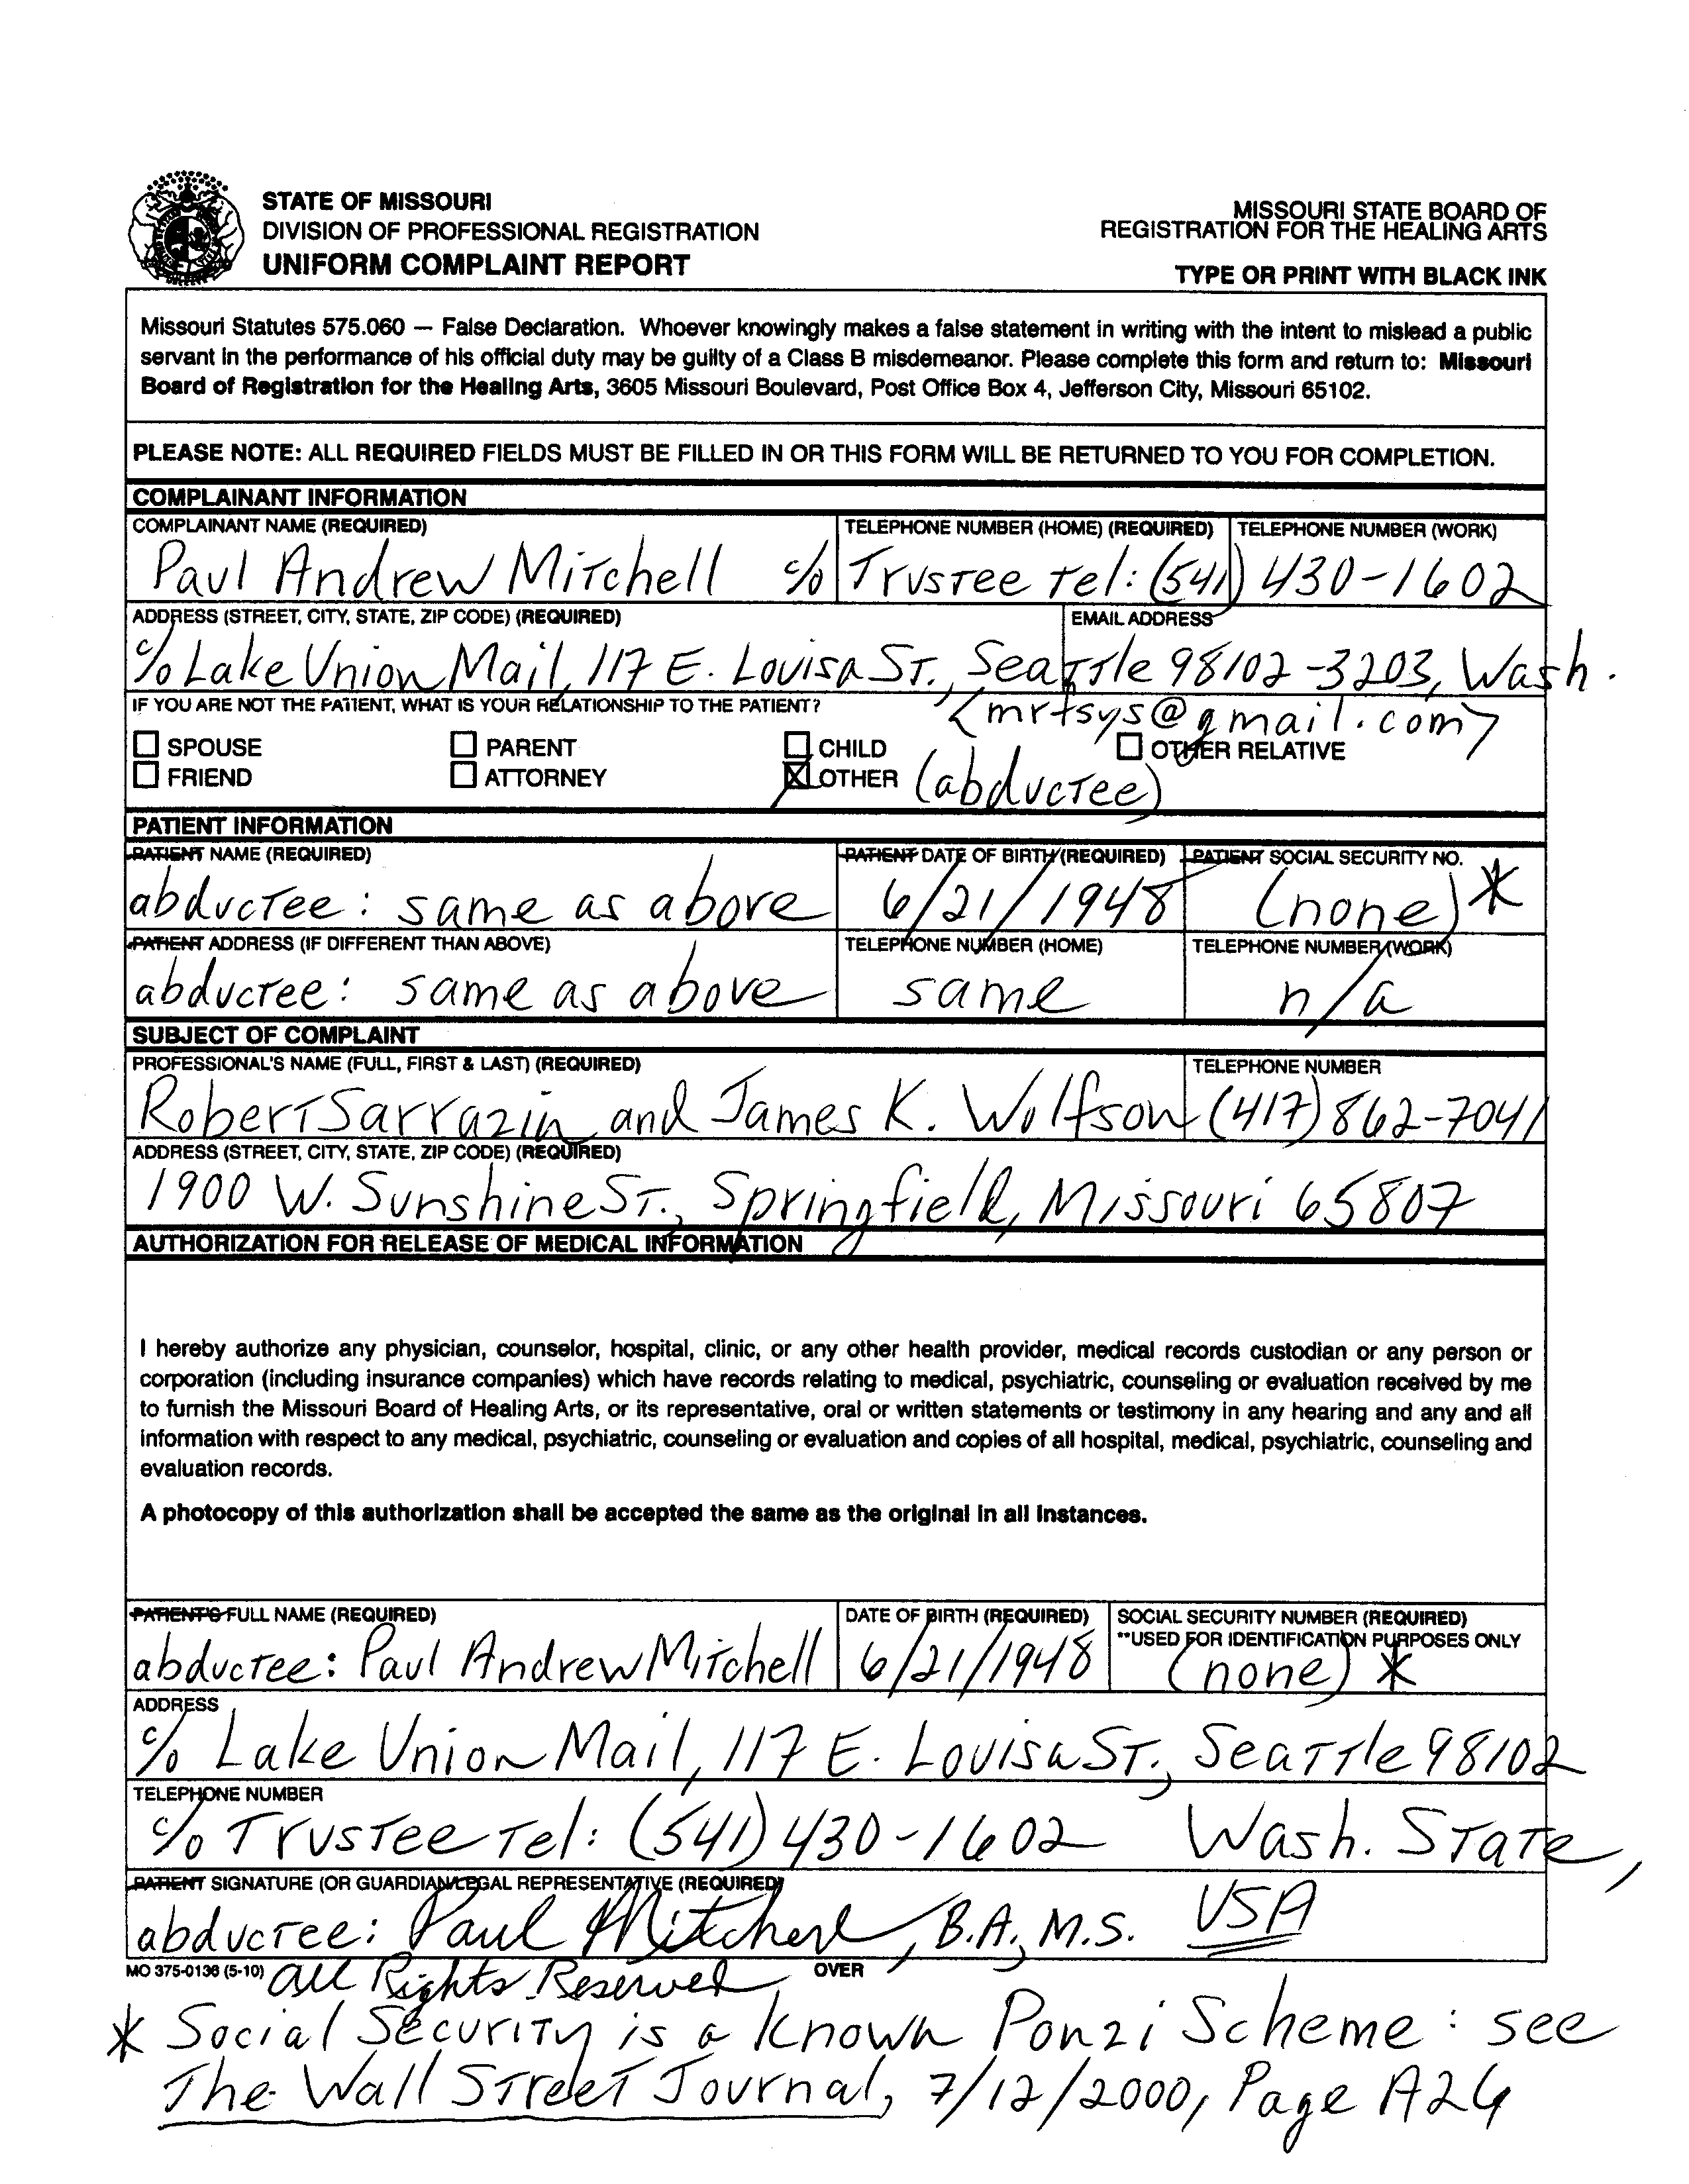 STATE OF MISSOURI
DIVISION OF PROFESSIONAL REGISTRATION
UNIFORM COMPLAINT REPORT
MISSOURI STATE BOARD OF
REGISTRATION FOR THE HEALING ARTS
TYPE OR PRINT WITH BLACK INK
Missouri Statutes 575.060 — False Declaration. Whoever knowingly makes a false statement in writing with the intent to mislead a public
servant in the performance of his official duty may be guilty of a Class B misdemeanor. Please complete this form and return to: Missouri
Board of Registration for the Healing Arts, 3605 Missouri Boulevard, Post Office Box 4, Jefferson City, Missouri 65102.
PLEASE NOTE: ALL REQUIRED FIELDS MUST BE FILLED IN OR THIS FORM WILL BE RETURNED TO YOU FOR COMPLETION.
COMPLAINANT INFORMATION
COMPLAINANT NAME (REQUIRED) TELEPHONE NUMBER (HOME) (REQUIRED) TELEPHONE NUMBER (WORK)
Paul Andrew Mitchell c/o Trustee Tel: (541) 430-1602
ADDRESS (STREET, CITY, STATE, ZIP CODE) (REQUIRED) EMAIL ADDRESS
c/o Lake Union Mail, 117 E. Louisa St., Seattle 98102-3203, Wash.
IF YOU ARE NOT THE PATIENT, WHAT IS YOUR RELATIONSHIP TO THE PATIENT? <mrfsys@gmail.com>
SPOUSE PARENT CHILD OTHER RELATIVE
FRIEND ATTORNEY OTHER (abductee)
PATIENT INFORMATION
PATIENT NAME (REQUIRED) PATIENT DATE OF BIRTH (REQUIRED) PATIENT SOCIAL SECURITY NO.
abductee: same as above 6/21/1948 (none) *
PATIENT ADDRESS (IF DIFFERENT THAN ABOVE) TELEPHONE NUMBER (HOME) TELEPHONE NUMBER (WORK)
abductee: same as above same n/a
SUBJECT OF COMPLAINT
PROFESSIONAL'S NAME (FULL, FIRST & LAST) (REQUIRED) TELEPHONE NUMBER
Robert Sarrazin and James K. Wolfson (417) 862-7041
ADDRESS (STREET, CITY, STATE, ZIP CODE) (REQUIRED)
1900 W. Sunshine St., Springfield, Missouri 65807
AUTHORIZATION FOR RELEASE OF MEDICAL INFORMATION
I hereby authorize any physician, counselor, hospital, clinic, or any other health provider, medical records custodian or any person or
corporation (including insurance companies) which have records relating to medical, psychiatric, counseling or evaluation received by me
to furnish the Missouri Board of Healing Arts, or its representative, oral or written statements or testimony in any hearing and any and all
information with respect to any medical, psychiatric, counseling or evaluation and copies of all hospital, medical, psychiatric, counseling and
evaluation records.
A photocopy of this authorization shall be accepted the same as the original in all instances.
PATIENT'S FULL NAME (REQUIRED) DATE OF BIRTH (REQUIRED) SOCIAL SECURITY NUMBER (REQUIRED)
**USED FOR IDENTIFICATION PURPOSES ONLY
abductee: Paul Andrew Mitchell 6/21/1948 (none) *
ADDRESS
c/o Lake Union Mail, 117 E. Louisa St., Seattle 98102
TELEPHONE NUMBER
c/o Trustee Tel: (541) 430-1602 Wash. State,
PATIENT SIGNATURE (OR GUARDIAN/LEGAL REPRESENTATIVE (REQUIRED)
abductee: Paul Mitchell, B.A., M.S. USA
MO 375-0136 (5-10) All Rights Reserved OVER
* Social Security is a known Ponzi Scheme: see
The Wall Street Journal, 7/12/2000, Page A24